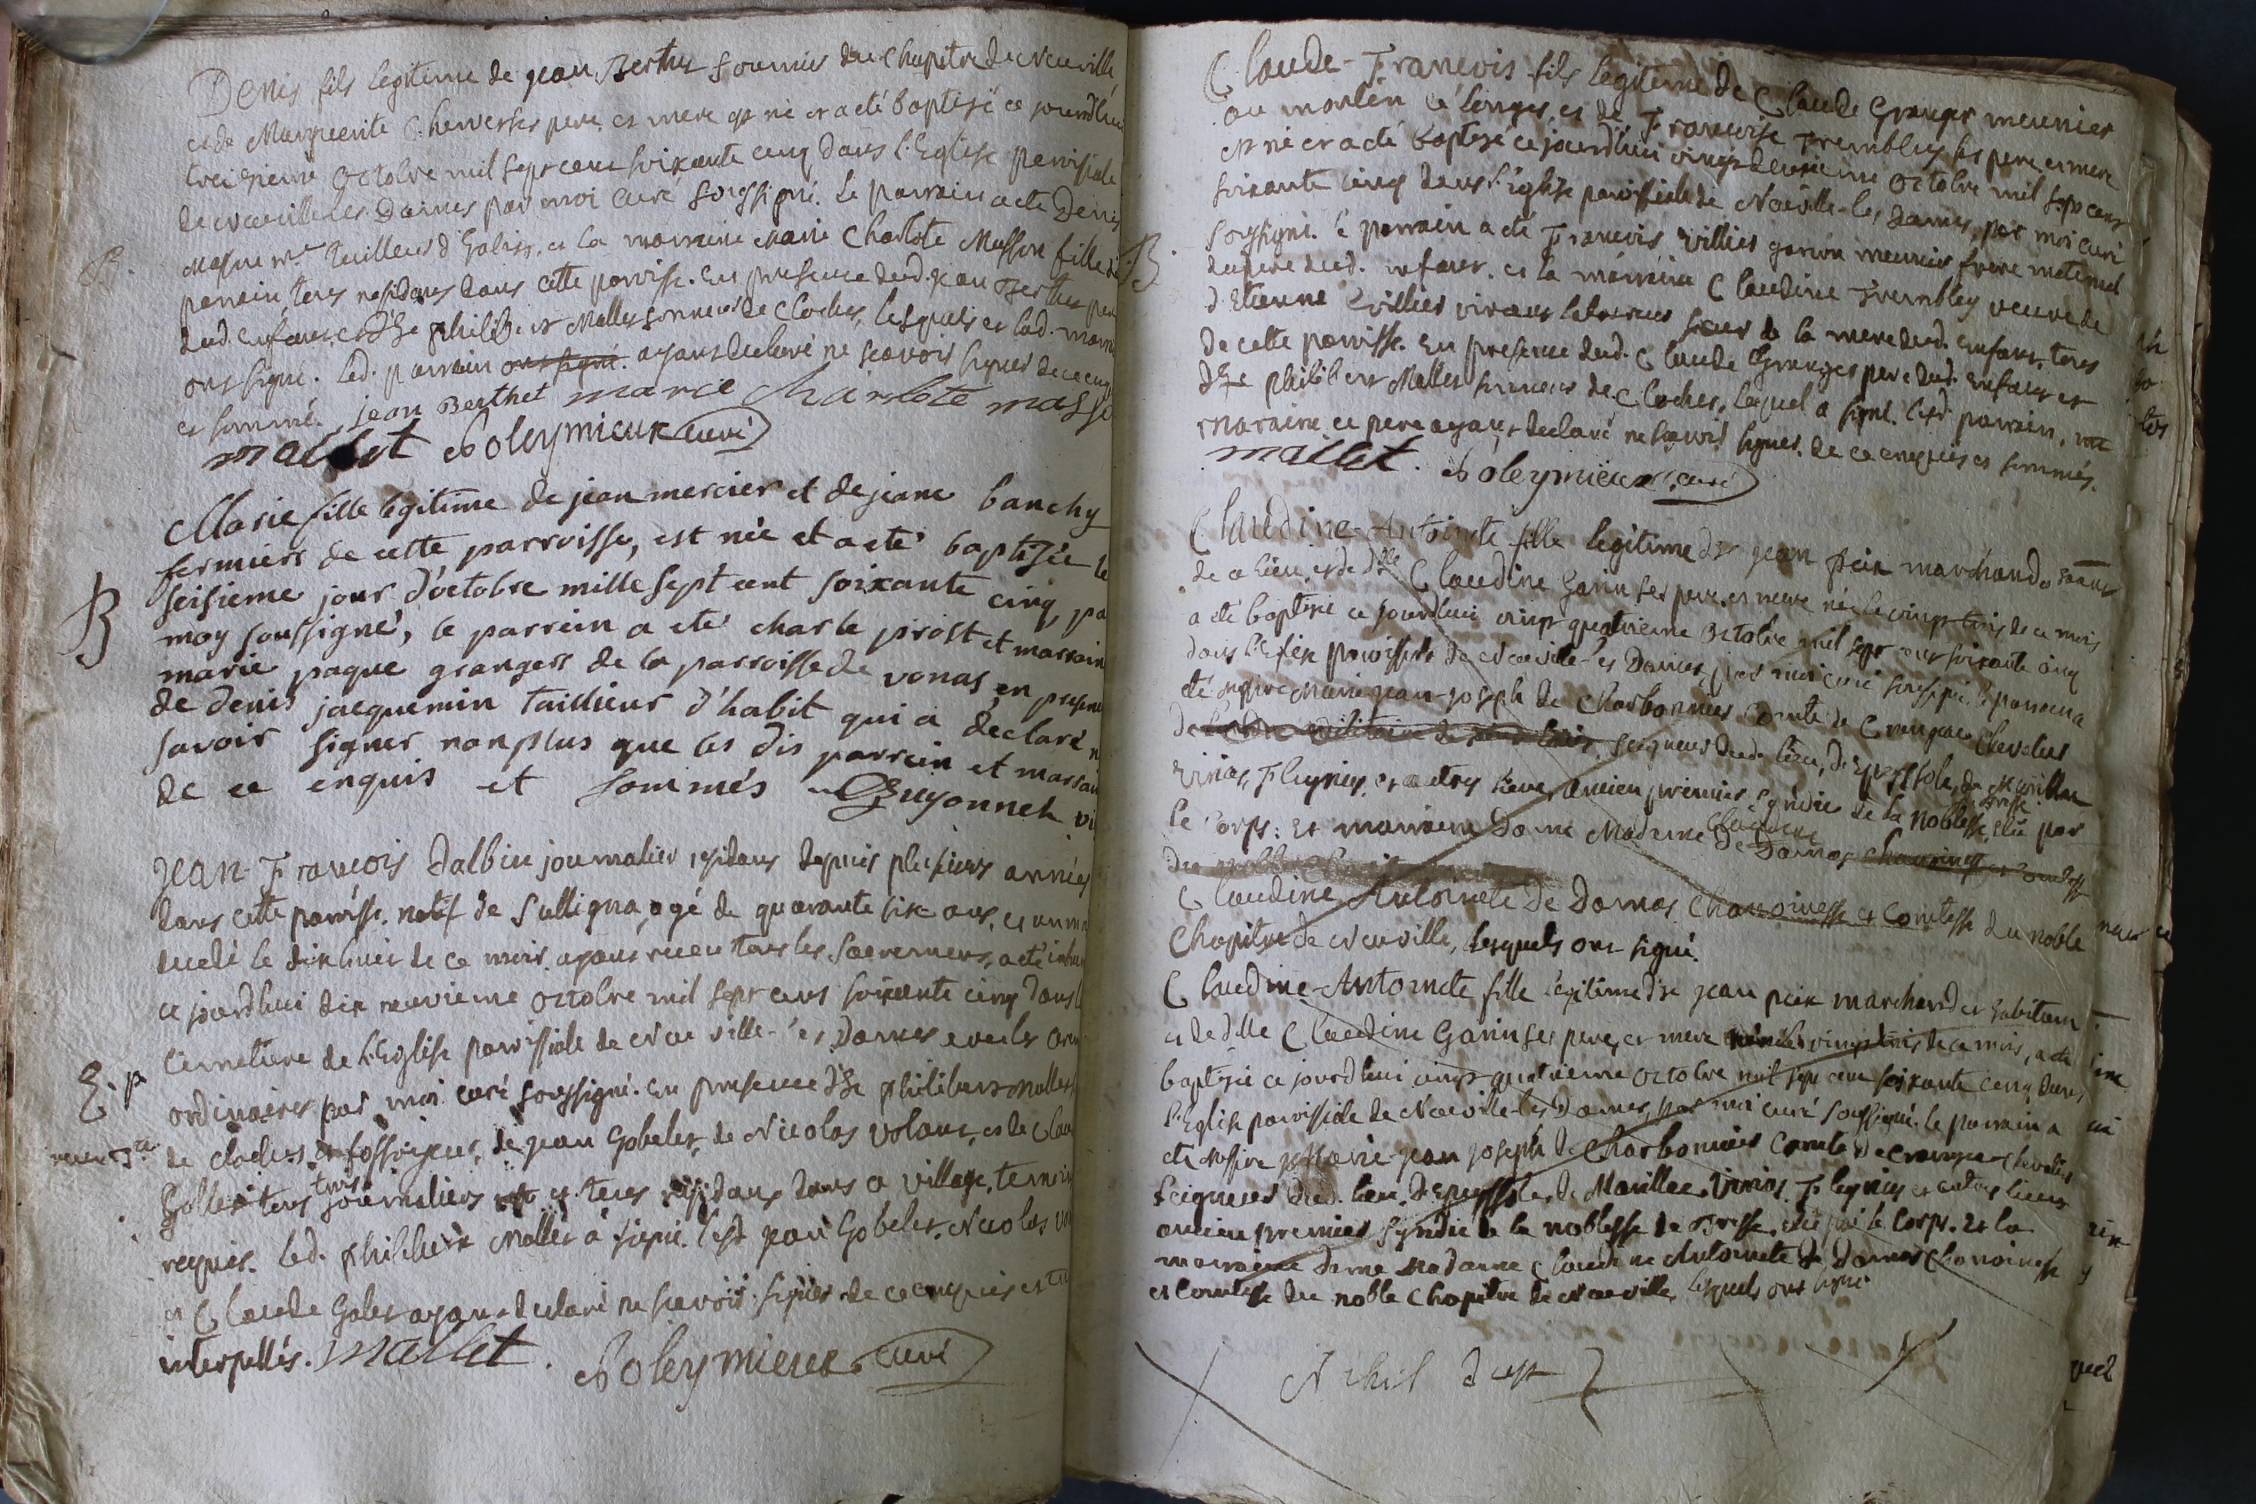 Denis fils legitime de jean Berthet fournier du chapitre de Neuville
et de Marguerite Cherverses pere et mere est né et a été baptisé ce jourd'hui
treizieme octobre mil sept cent soixante cinq dans l'Eglise paroissiale
de Neuville les Dames par moi curé soussigné. Le parrain a été Denis
B. Masson me tailleur d'habits, et la marraine Marie Charlote Masson fille du
parrain, tous residans dans cette paroisse. En presence dud. jean Berthet pere
dud. enfant, et d'he philibert Mallet sonneur de cloches, lesquels et lad. marraine
ont signé. led. parrain ont signé. ayant declaré ne scavoir signer de ce enquis
et sommé. jean Berthet marie charlote masson
mallet Noleymieux curé
Marie fille legitime de jean mercier et de jeane banchy
fermiers de cette parroisse, est née et a eté baptisée le
B seisieme jour d'octobre mille sept cent soixante cinq, pa
moy soussigné, le parrein a eté charle prost et marrain
marie paque grangers de la parroisse de vonas, en presen
de denis jacquemin taillieur d'habit qui a déclaré n
savoir signer nonplus que les dis parrein et marrain
de ce enquis et sommés Guyonnet vi
jean-François Dalbin journalier residant depuis plusieurs années
dans cette paroisse. natif de Sulligna, agé de quarante six ans, et
decedé le dix huit de ce mois, ayant receu tous les sacremens, a été inhu
ce jourd'hui dix neuvieme octobre mil sept cent soixante cinq dans l
Cemetiere de l'Eglise paroissiale de Neuville-les Dames avec les
E. p. ordinaires par moi curé soussigné. en presence d'he philibert mallet
de cloches et fossoyeur, de jean Gobelet, de Nicolas volant, et de Clau
Gollet tous trois journaliers et tous residans dans ce village, temoins
requis. led. philibert Mallet a signé. lesd jean Gobelet, Nicolas vo
et Claude Golet ayant declaré ne scavoir signer de ce enquis et
interpellés. mallet. Noleymieux curé
Claude-François fils legitime de Claude Granger meunier
au moulin et de Françoise Trembley ses pere et mere
est né et a été baptisé ce jourd'hui vingt deuxieme octobre mil sept cent
soixante cinq dans l'église paroissiale de Neuville-les Dames, par moi curé
B. soussigné. le parrain a été François Villier garçon meunier frere maternel
du pere dud. enfant. et la marraine Claudine Trembley veuve de
d'Etienne Villier vivant soeur de la mere dud. enfant, tous
de cette paroisse. En presence dud. Claude Granger pere dud. enfant et
d'he philibert Mallet sonneur de cloches, lequel a signé. lesd. parrain,
maraine et pere ayant declaré ne scavoir signer. de ce enquis et sommés.
mallet. Noleymieux, curé
Claudine-Antoinete fille legitime d'sr jean peix marchand
de ce lieu, et de dlle Claudine Garin ses pere et mere née le vingt trois de ce mois
a été baptisée ce jourd'hui vingt quatrieme octobre mil sept cent soixante cinq
dans l'Eglise paroissiale de Neuville-les Dames, par moi curé soussigné. le parrain a
été messire Marie jean-joseph de Charbonnier Comte de Crangeac Chevalier
de l'ordre militaire de saint louis, seigneur dud. lieu, d'Epeyssoles, de Marillac
Vinas, Fleyries, et autres lieux, ancien premier syndic de la noblesse de Bresse, élu par
le corps: Et marraine Dame Madame Claudine de Damas Chanoinesse et Comtesse
du noble
Claudine Antoinete de Damas Chanoinesse et Comtesse du noble
Chapitre de Neuville, lesquels ont signé.
Claudine-Antoinete fille légitime d'sr jean peix marchand et habitant
et de dlle Claudine Garin ses pere, et mere née le vingt trois de ce mois, a été
baptisée ce jourd'hui vingt quatrieme octobre mil sept cent soixante cinq dans
l'Eglise paroissiale de Neuville-les Dames, par moi curé soussigné. le parrain a
été Messire Marie-jean joseph de Charbonnier Comte de Crangeac chevalier
seigneur dud. lieu, d'Epeyssoles, de Marillac, Vinas, Fleyries et autres lieux
ancien premier syndic de la noblesse de Bresse, élu par le corps. Et la
marraine dame Madame Claudine Antoinete de Damas Chanoinesse
et Comtesse du noble Chapitre de Neuville, lesquels ont signé
Nihil dest